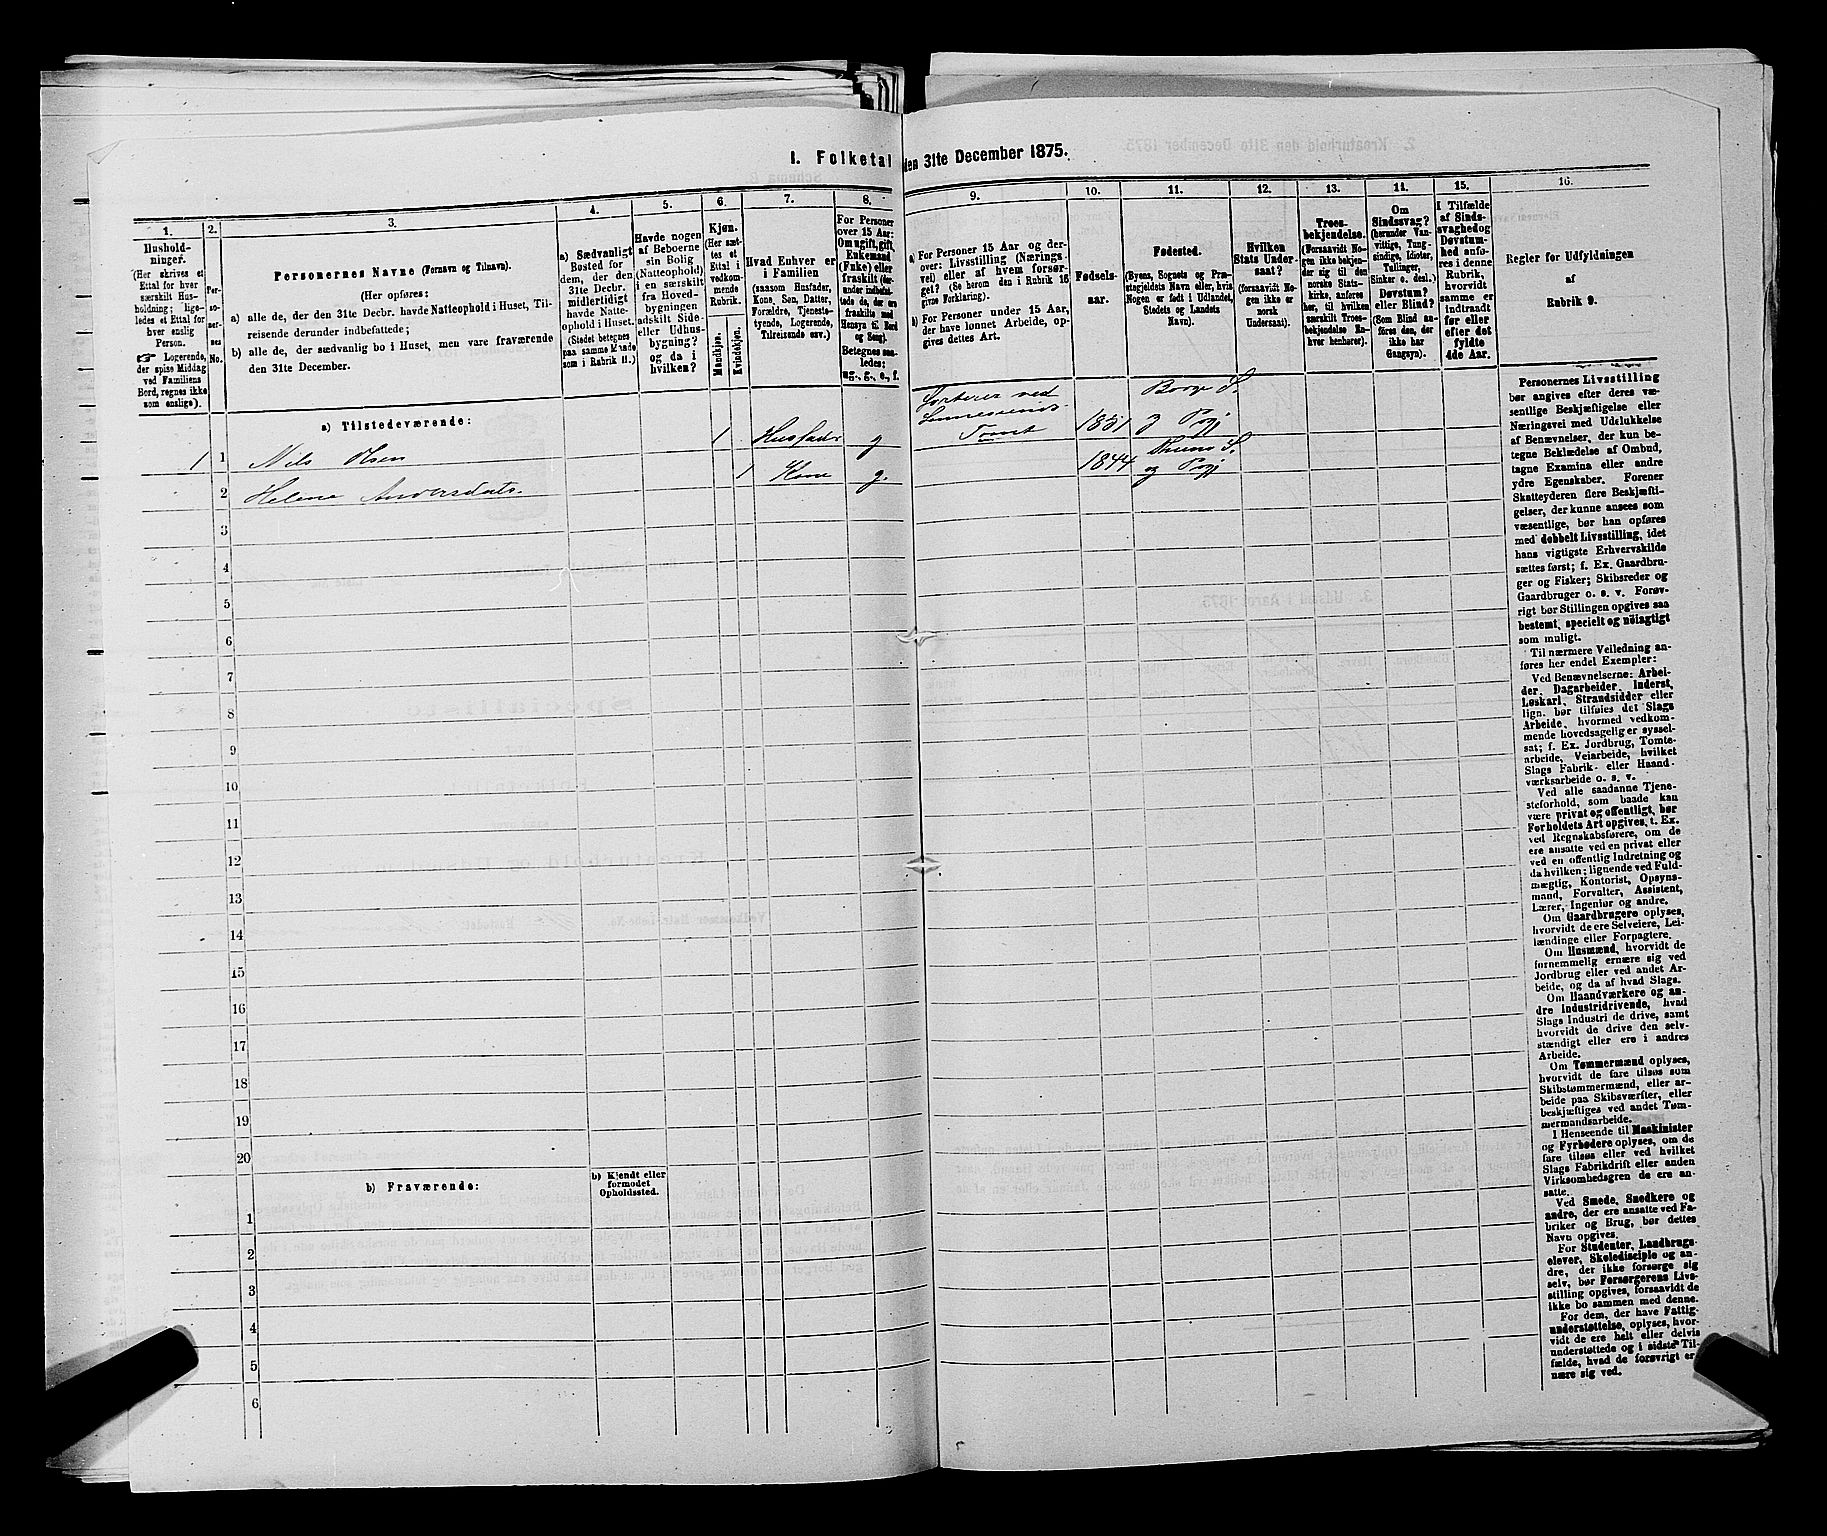 1. Folketal
den 31te December 1875.
1.
2.
3.
4.
5.
6.
7.
8.
9.
10.
11.
12.
13.
14.
15.
16.
Hushold-
ninger.
(Her skrives et
Ettal for hver
særskilt Hus-
holdning; lige-
ledes et Ettal for
hver enslig
Person.
☞ Logerende,
der spise Middag
ved Familiens
Bord, regnes ikke
som enslige).
Per-
so-
ner-
nes
No.
Personernes Navne (Fornavn og Tilnavn).
(Her opføres:
a) alle de, der den 31te Decbr. havde Natteophold i Huset, Til-
reisende derunder indbefattede;
b) alle de, der sædvanlig bo i Huset, men vare fraværende
den 31te December.
a) Sædvanligt
Bosted for
dem, der den
31te Decbr.
midlertidigt
havde Natte-
ophold i Huset.
(Stedet betegnes
paa samme Maade
som i Rubrik 11.)
Havde nogen
af Beboerne
sin Bolig
(Natteophold)
i en særskilt
fra Hoved-
bygningen
adskilt Side-
eller Udhus-
bygning?
og da i
hvilken?
Kjøn.
(Her sæt-
tes et
Ettal i
vedkom-
mende
Rubrik.
Mandkjøn.
Kvindekjøn.
Hvad Enhver er
i Familien
(saasom Husfader,
Kone, Søn, Datter,
Forældre, Tjeneste-
tyende, Logerende,
Tilreisende osv.)
For Personer
over 15 Aar:
Om ugift, gift,
Enkemand
(Enke) eller
fraskilt (her-
under indbefat-
tede de, der ere
fraskilte med
Hensyn til Bord
og Seng).
Betegnes saa-
ledes:
ug., g., e., f.
a) For Personer 15 Aar og der-
over: Livsstilling (Nærings-
vei) eller af hvem forsør-
get? (Se herom den i Rubrik 16
givne Forklaring).
b) For Personer under 15 Aar,
der have lønnet Arbeide, op-
gives dettes Art.
Fødsels-
aar.
Fødested.
(Byens, Sognets og Præ-
stegjeldets Navn eller, hvis
Nogen er født i Udlandet,
Stedets og Landets
Navn).
Hvilken
Stats Under-
saat?
(forsaavidt No-
gen ikke er
norsk
Undersaat).
Troes-
bekjendelse.
(Forsaavidt No-
gen ikke bekjen-
der sig til den
norske Stats-
kirke, anføres
her, til hvilken
særskilt Troes-
bekjendelse En-
hver henhører).
Om
Sindssvag?
(herunder Van-
vittige, Tung-
sindige, Idioter,
Tullinger,
Sinker o. desl.)
Døvstum?
eller Blind?
(Som Blind an-
føres den, der
ikke har
Gangsyn).
I Tilfælde
af Sinds-
svaghed og
Døvstum-
hed anfø-
res i denne
Rubrik,
hvorvidt
samme er
indtraadt
før eller
efter det
fyldte
4de Aar.
Regler for Udfyldningen
af
Rubrik 9.
a) Tilstedeværende:
1 1 Nils Olsen 1 Husfader g ved Tomt 1851 Borge S. og Pgj
2 Helene Andersdatr. 1 Kone g. 1844 S. og Pgj
3
4
5
6
7
8
9
10
11
12
13
14
15
16
17
18
19
20
b) Fraværende:
b) Kjendt eller
formodet
Opholdssted.
1
2
3
4
5
6
Personernes Livsstilling
bør angives efter deres væ-
sentlige Beskjæftigelse eller
Næringsvei med Udelukkelse
af Benævnelser, der kun be-
tegne Beklædelse af Ombud,
tagne Examina eller andre
ydre Egenskaber. Forener
Skatteyderen flere Beskjæfti-
gelser, der kunne ansees som
væsentlige, bør han opføres
med dobbelt Livsstilling, idet
hans vigtigste Erhvervskilde
sættes først; f. Ex. Gaardbru-
ger og Fisker; Skibsreder og
Gaardbruger o. s. v. Forøv-
rigt bør Stillingen opgives saa
bestemt, specielt og nøiagtigt
som muligt.
Til nærmere Veiledning an-
føres her endel Exempler:
Ved Benævnelserne: Arbei-
der, Dagarbeider, Inderst,
Løskarl, Strandsidder eller
lign. bør tilføies det Slags
Arbeide, hvormed vedkom-
mende hovedsagelig er syssel-
sat; f. Ex. Jordbrug, Tomte-
arbeide, Veiarbeide, hvilket
Slags Fabrik- eller Haand-
værksarbeide o. s. v.
Ved alle saadanne Tjene-
steforhold, som baade kan
være privat og offentligt, bør
Forholdets Art opgives, t. Ex.
ved Regnskabsførere, om de
ere ansatte ved en privat eller
ved en offentlig Indretning og
da hvilken; lignende ved Fuld-
mægtig, Kontorist, Opsyns-
mand, Forvalter, Assistent,
Lærer, Ingeniør og andre.
Om Gaardbrugere oplyses,
hvorvidt de ere Selveiere, Lei-
lændinge eller Forpagtere.
Om Husmænd, hvorvidt de
fornemmelig ernære sig ved
Jordbrug eller ved andet Ar-
beide, og da af hvad Slags.
Om Haandværkere og an-
dre Industridrivende, hvad
Slags Industri de drive, samt
hvorvidt de drive den selv-
stændigt eller ere i andres
Arbeide.
Om Tømmermænd oplyses,
hvorvidt de fare tilsøs som
Skibstømmermænd, eller ar-
beide paa Skibsværfter, eller
beskjæftiges ved andet Tøm-
mermandsarbeide.
I Henseende til Maskinister
og Fyrbødere oplyses, om de
fare tilsøs eller ved hvilket
Slags Fabrikdrift eller anden
Virksomhedsgren de ere an-
satte.
Ved Smede, Snedkere og
andre, der ere ansatte ved Fa-
briker og Brug, bør dettes
Navn opgives.
For Studenter, Landbrugs-
elever, Skoledisciple og an-
dre, der ikke forsørge sig
selv, bør Forsørgerens Livs-
stilling opgives, forsaavidt de
ikke bo sammen med denne.
For dem, der have Fattig-
understøttelse, oplyses, hvor-
vidt de ere helt eller delvis
understøttede og i sidste Til-
fælde, hvad de forøvrigt er-
nære sig ved.